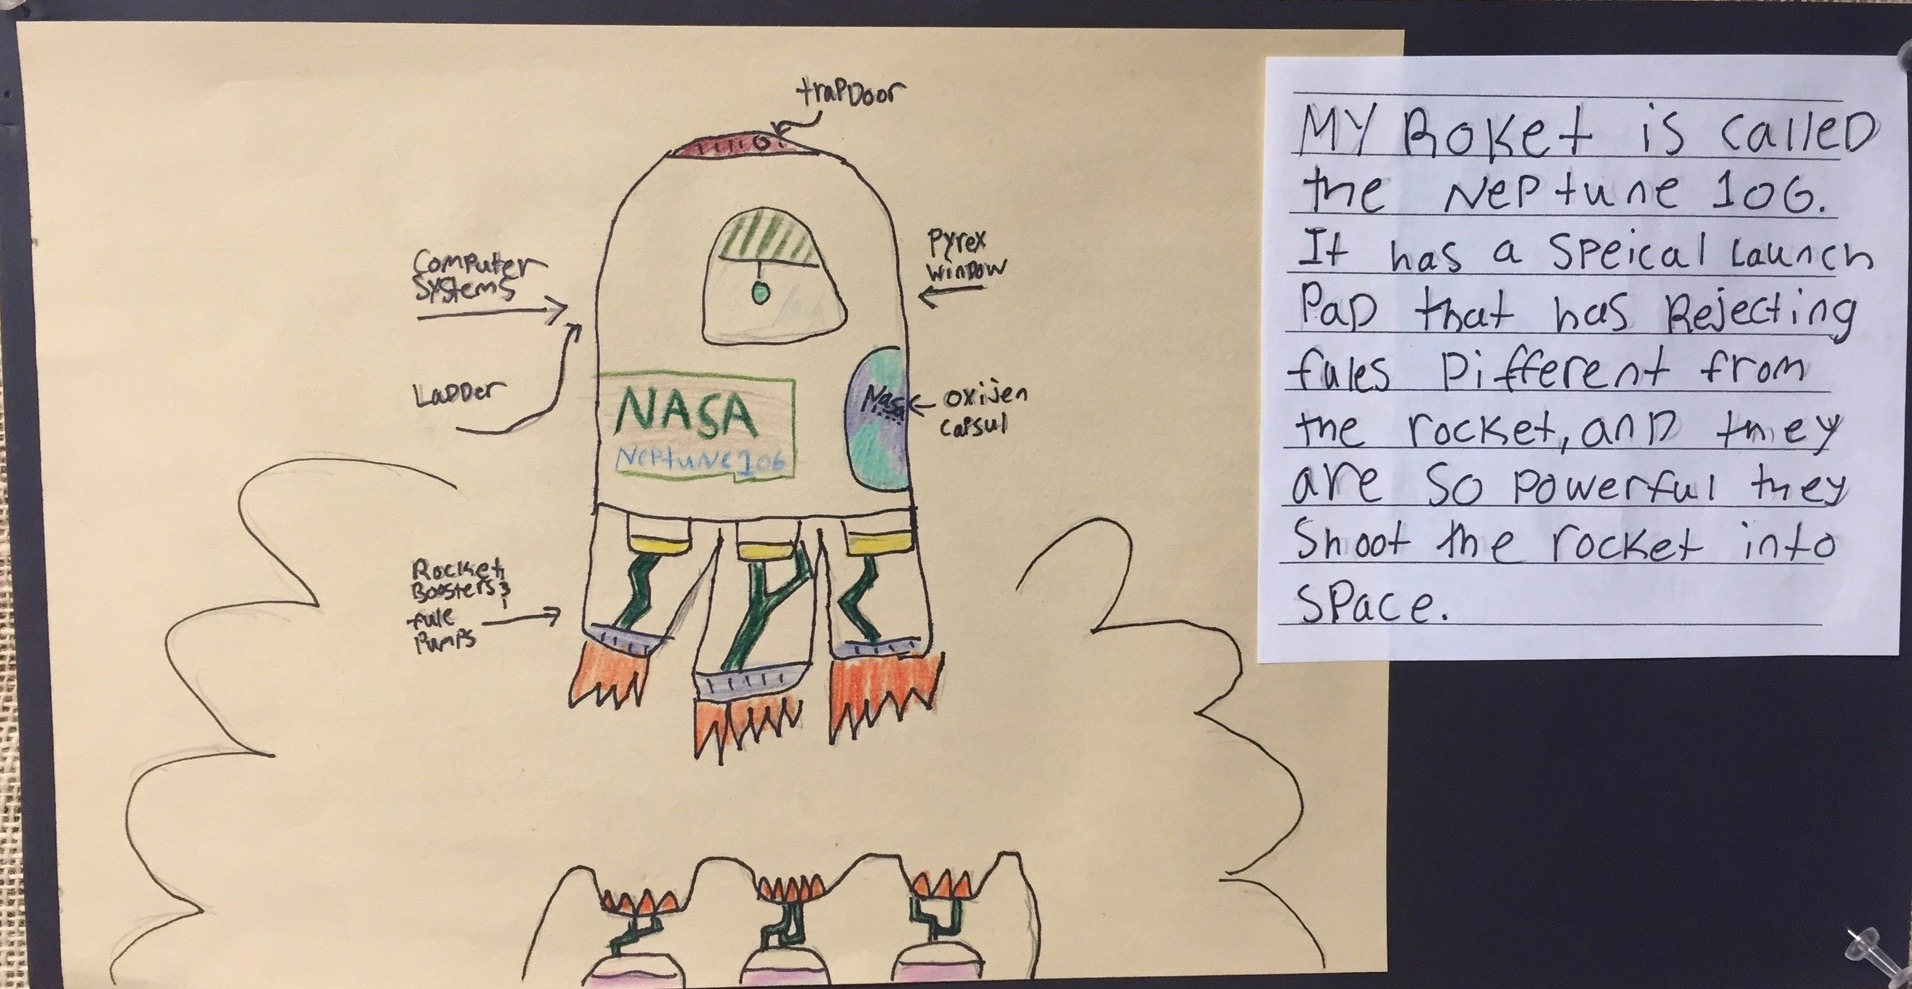 trapDoor
Computer
Systems
Pyrex
WinDow
LaDDer
NASA
Neptune 106
Nasa
oxijen
capsul
Rocket
Boosters &
fule
Pumps
MY Roket is calleD
the Neptune 106.
It has a Speical Launch
PaD that has Rejecting
fules Different from
the rocket, anD they
are so powerful they
Shoot the rocket into
Space.